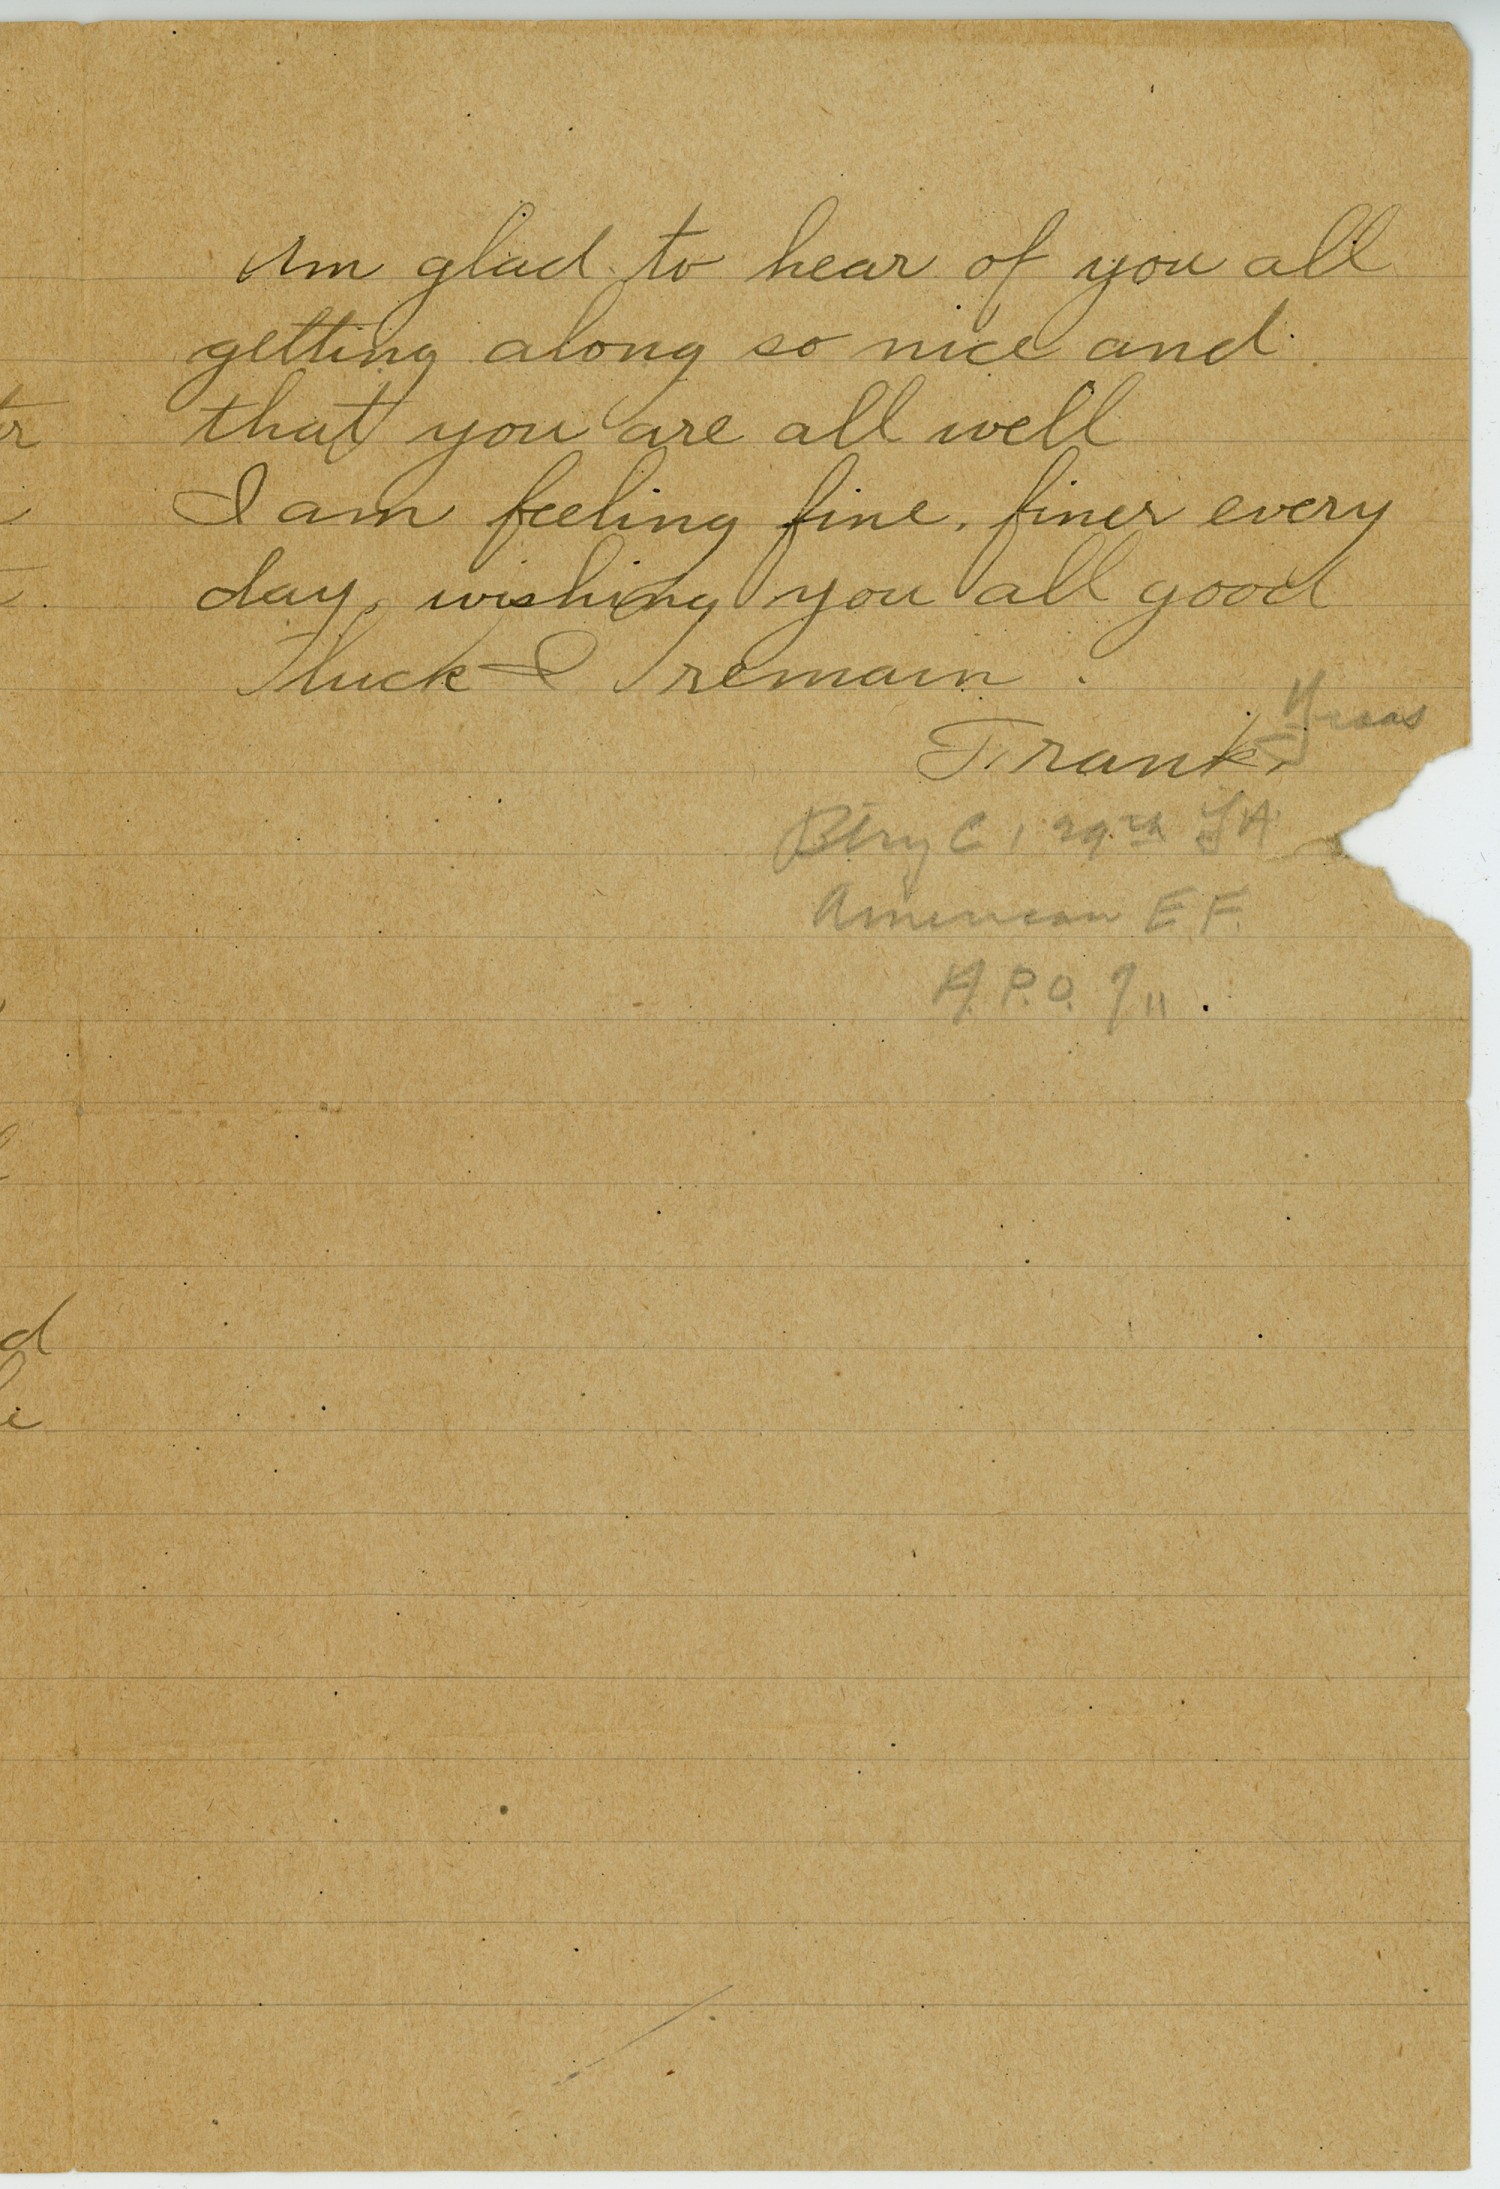 Am glad to hear of you all
getting along so nice and
that you are all well
I am feeling fine, finer every
day, wishing you all good
luck I remain.
Frank.
Btry C, 129th F A
American E F.
A.P.O. 711